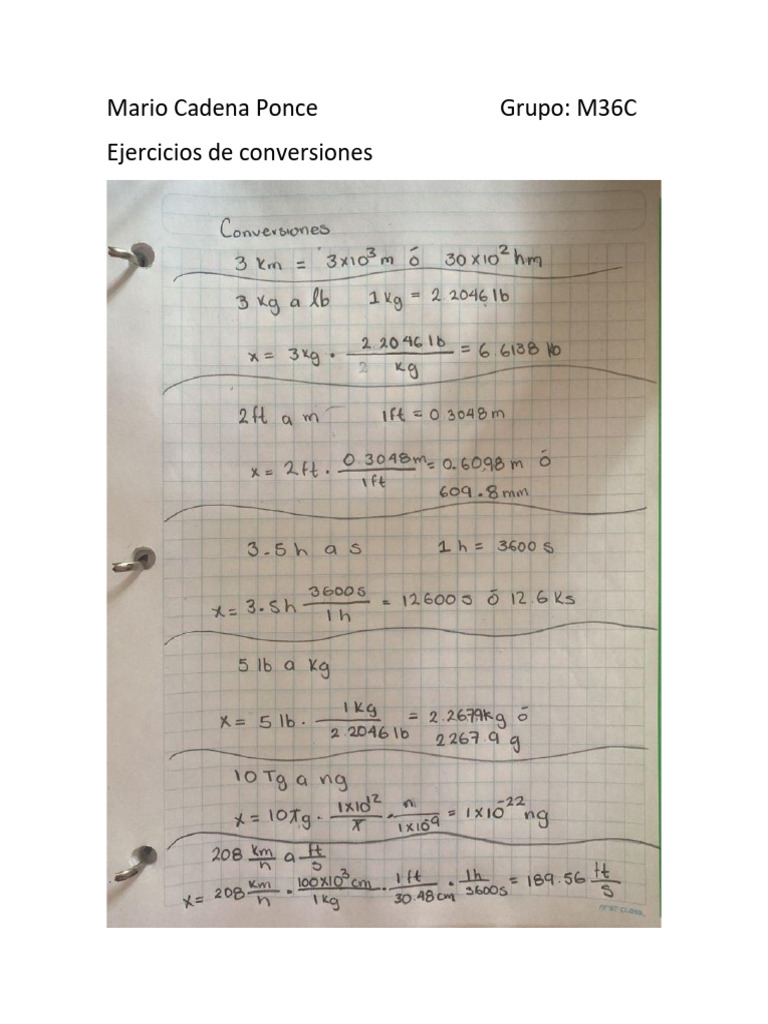 Mario Cadena Ponce Grupo: M36C
Ejercicios de conversiones
Conversiones
3 Km = 3x10³ m ó 30x10² hm
3 Kg a lb 1 kg = 2.2046 lb
x = 3kg · 2.2046 lb / kg = 6.6138 lb
2ft a m 1ft = 0.3048 m
x = 2ft · 0.3048m / 1ft = 0.6098 m ó
609.8 mm
3.5 h a s 1 h = 3600 s
x = 3.5h 3600s / 1h = 12600 s ó 12.6 Ks
5 lb a Kg
x = 5 lb · 1 Kg / 2.2046 lb = 2.2679kg ó
2267.9 g
10 Tg a ng
x = 10Tg · 1x10¹² / T · n / 1x10⁻⁹ = 1x10⁻²² ng
208 Km/h a ft/s
x = 208 Km/h · 100x10³ cm / 1 kg · 1 ft / 30.48 cm · 1h / 3600s = 189.56 ft/s